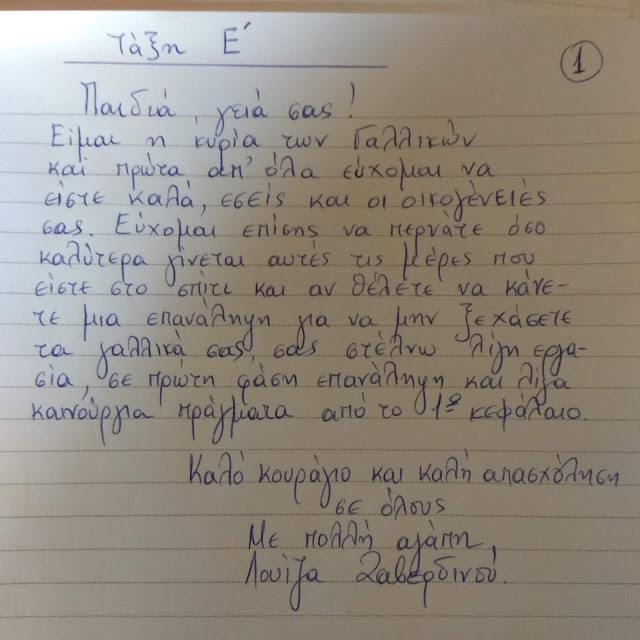 Τάξη Ε΄
1
Παιδιά, γειά σας!
Είμαι η κυρία των Γαλλικών
και πρώτα απ' όλα εύχομαι να
είστε καλά, εσείς και οι οικογένειές
σας. Εύχομαι επίσης να περνάτε όσο
καλύτερα γίνεται αυτές τις μέρες που
είστε στο σπίτι και αν θέλετε να κάνε-
τε μια επανάληψη για να μην ξεχάσετε
τα γαλλικά σας, σας στέλνω λίγη εργα-
σία, σε πρώτη φάση επανάληψη και λίγα
καινούργια πράγματα από το 1ο κεφάλαιο.
Καλό κουράγιο και καλή απασχόληση
σε όλους
Με πολλή αγάπη,
Λουίζα Σαβερδινού.